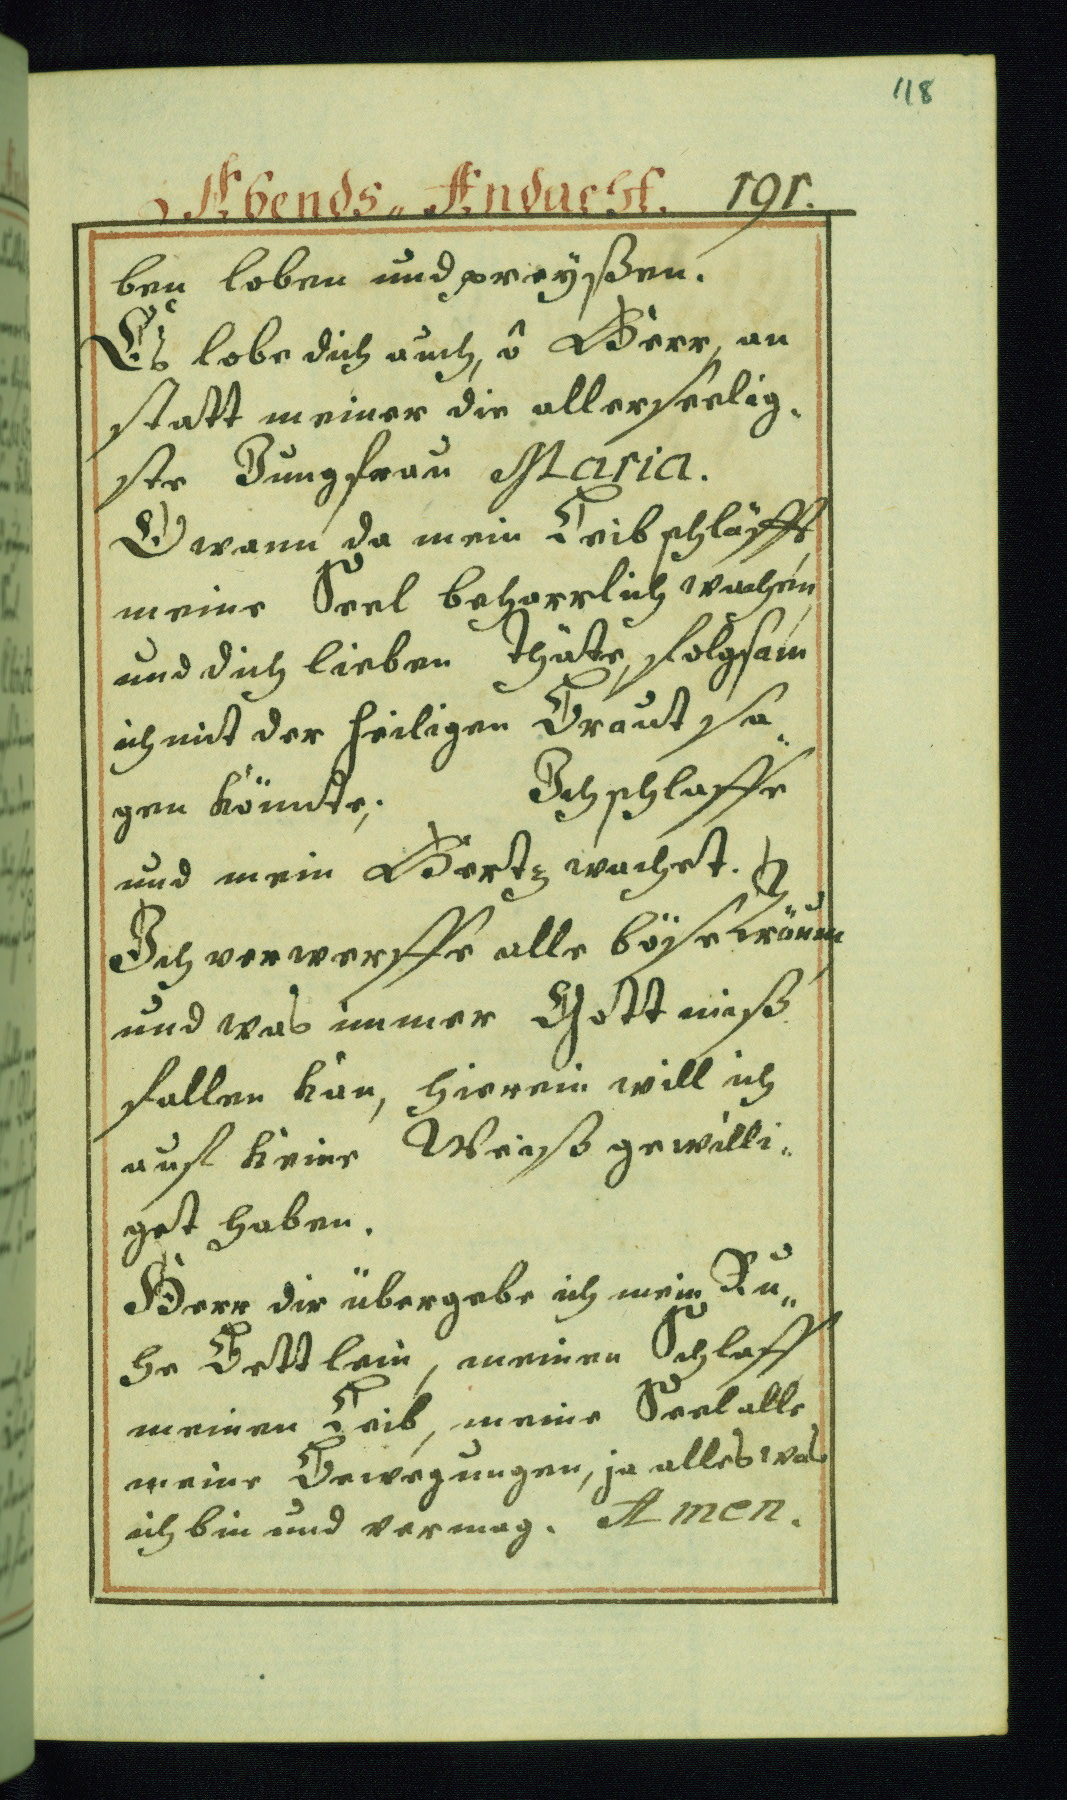 118
Abends-Andacht. 191.
ben loben und preÿßen.
Es lobe dich auch, ô Herr, an
statt meiner die allerseelig-
ste Jungfrau Maria.
O wann da mein Leib schläfft,
meine Seel beharrlich wachen,
und dich lieben thäte, folgsam
ich mit der heiligen Braut sa-
gen könndte; Ich schlaffe
und mein Hertz wachet.
Ich verwerffe alle böse träum
und was immer Gott miß-
fallen kan, hierein will ich
auf keine Weiß gewilli-
get haben.
Herr dir übergebe ich mein Ru-
he Bettlein, meinen Schlaff
meinen Leib, meine Seel alle
meine Bewegungen, ja alles was
ich bin und vermag. Amen.